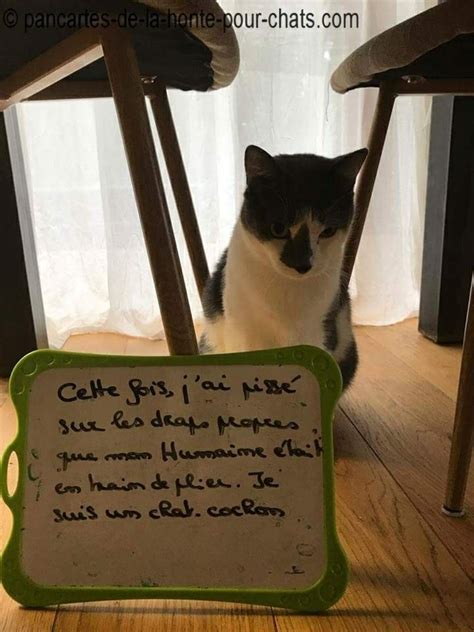 © pancartes-de-la-honte-pour-chats.com
Cette fois, j'ai pissé
sur les draps propres
que mon Humaine était
en train de plier. Je
suis un chat-cochon